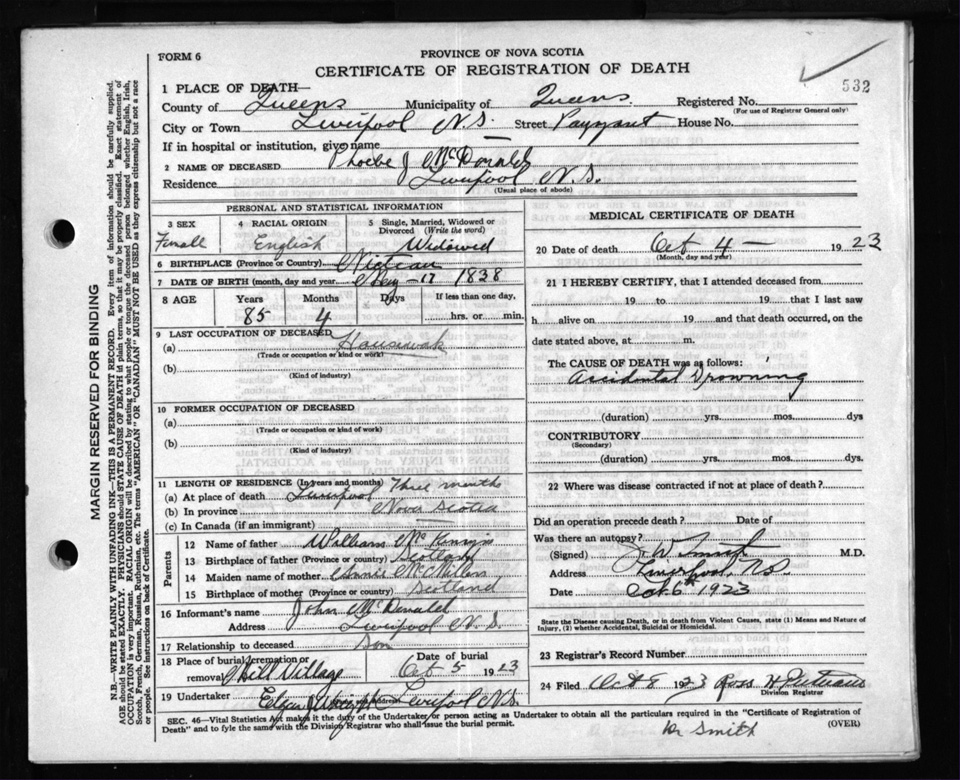 FORM 6
PROVINCE OF NOVA SCOTIA
CERTIFICATE OF REGISTRATION OF DEATH
532
1 PLACE OF DEATH—
County of Queens Municipality of Queens Registered No.
(For use of Registrar General only)
City or Town Liverpool N.S. Street Payzant House No.
If in hospital or institution, give name —
2 NAME OF DECEASED Phoebe J McDonald
Residence Liverpool N.S.
(Usual place of abode)
PERSONAL AND STATISTICAL INFORMATION
3 SEX Female
4 RACIAL ORIGIN English
5 Single, Married, Widowed or Divorced (Write the word) Widowed
6 BIRTHPLACE (Province or Country) Nictau
7 DATE OF BIRTH (month, day and year) May - 17 1838
8 AGE Years 85 Months 4 Days If less than one day, hrs. or min.
9 LAST OCCUPATION OF DECEASED
(a) Housewak
(Trade or occupation or kind or work)
(b)
(Kind of industry)
10 FORMER OCCUPATION OF DECEASED
(a)
(Trade or occupation or kind of work)
(b)
(Kind of industry)
11 LENGTH OF RESIDENCE (In years and months)
(a) At place of death Liverpool Three months
(b) In province Nova Scotia
(c) In Canada (if an immigrant) —
Parents
12 Name of father William
13 Birthplace of father (Province or country) Scotland
14 Maiden name of mother Annie McMillen
15 Birthplace of mother (Province or country) Scotland
16 Informant's name John McDonald
Address Liverpool N.S.
17 Relationship to deceased Son
18 Place of burial, cremation or removal Mill Village Date of burial Oct 5 1923
19 Undertaker Edgar J Wright Address Liverpool N.S.
MEDICAL CERTIFICATE OF DEATH
20 Date of death Oct 4 — 1923
(Month, day and year)
21 I HEREBY CERTIFY, that I attended deceased from
19 to 19 that I last saw
h alive on 19 and that death occurred, on the
date stated above, at m.
The CAUSE OF DEATH was as follows:
Accidental Drowning
(duration) yrs. mos. dys
CONTRIBUTORY
(Secondary)
(duration) yrs. mos. dys.
22 Where was disease contracted if not at place of death?
Did an operation precede death? Date of
Was there an autopsy?
(Signed) J W Smith M.D.
Address Liverpool, N.S.
Date Oct. 6th 1923
State the Disease causing Death, or in death from Violent Causes, state (1) Means and Nature of Injury, (2) whether Accidental, Suicidal or Homicidal.
23 Registrar's Record Number
24 Filed Oct 8 1923 Ross H
Division Registrar
SEC. 46—Vital Statistics Act makes it the duty of the Undertaker or person acting as Undertaker to obtain all the particulars required in the "Certificate of Registration of
Death" and to fyle the same with the Division Registrar who shall issue the burial permit.
(OVER)
Dr Smith
MARGIN RESERVED FOR BINDING
N.B.—WRITE PLAINLY WITH UNFADING INK—THIS IS A PERMANENT RECORD. Every item of information should be carefully supplied.
AGE should be stated EXACTLY. PHYSICIANS should STATE CAUSE OF DEATH in plain terms, so that it may be properly classified. Exact statement of
OCCUPATION is very important. RACIAL ORIGIN will be described by stating to what people or tongue the deceased person belonged whether English, Irish,
Scotch, French, German, Russian, Ruthenian, etc. The terms "AMERICAN" OR "CANADIAN" MUST NOT BE USED as they express citizenship but not a race
or people. See instructions on back of Certificate.